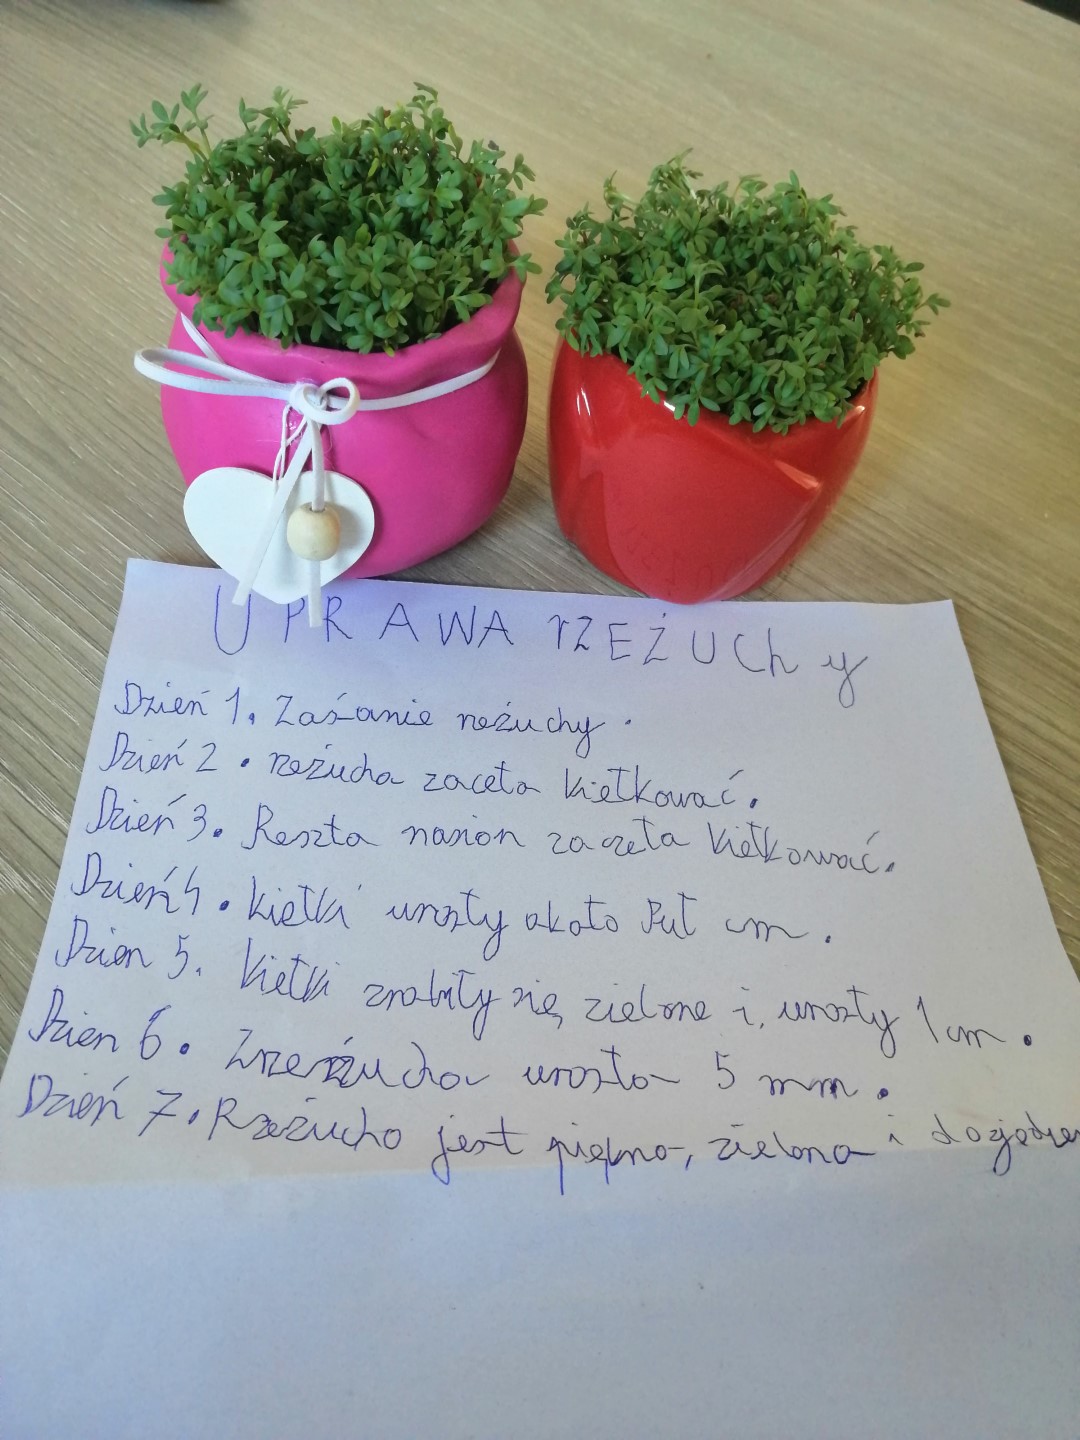 UPRAWA rZEŻUChy
Dzień 1. Zaśanie rzeżuchy.
Dzień 2. rzeżucha zaceła kiełkować.
Dzień 3. Reszta nasion zaczeła kiełkować.
Dzień 4. kiełki urosły około Puł cm.
Dzien 5. kiełki zrobiły się zielone i urosły 1 cm.
Dzien 6. urosła 5 mm.
Dzień 7. Rzeżucha jest piękna, zielona i